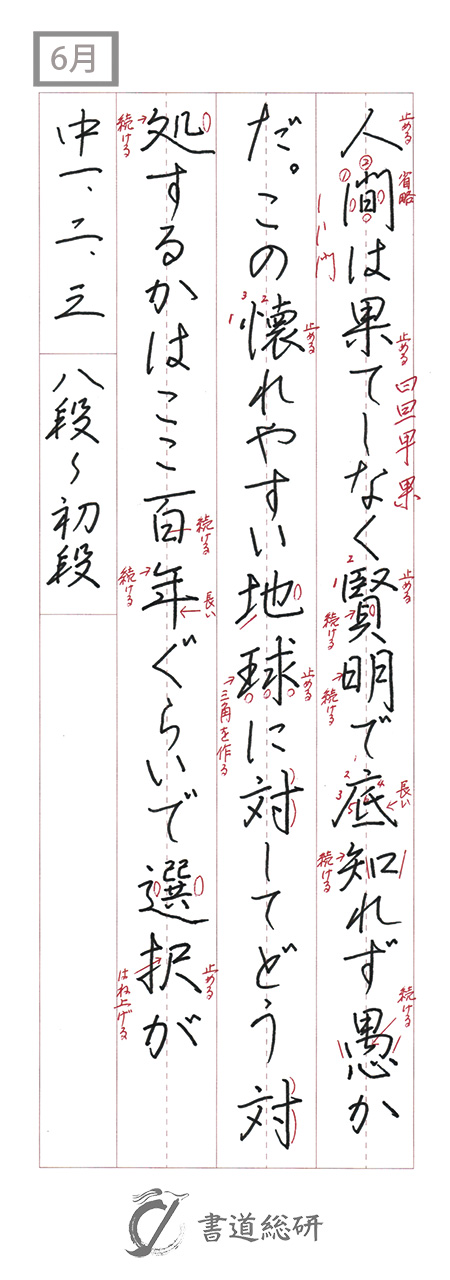 6月
人間は果てしなく賢明で底知れず愚か
止める
省略
① ②
止める
止める
1 2
続ける
続ける
長い
1 2 3 4 5
続ける
続ける
だ。この懐れやすい地球に対してどう対
1 3 2
止める
止める
→三角を作る
処するかはここ百年ぐらいで選択が
続ける→
続ける
続ける→
長い
止める
はね上げる
中一、二、三
八段〜初段
書道総研